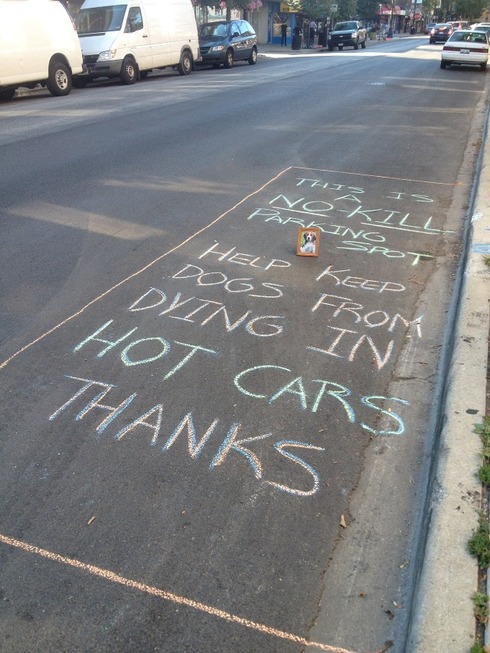 THIS IS
A
NO-KILL
PARKING
SPOT
HELP KEEP
DOGS FROM
DYING IN
HOT CARS
THANKS